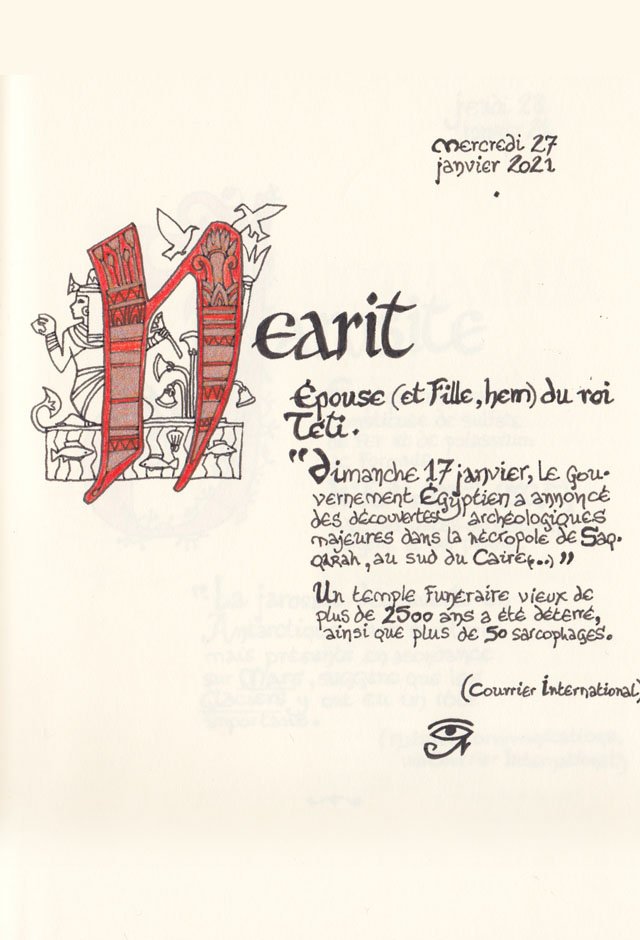 mercredi 27
janvier 2021
Nearit
Épouse (et Fille, hem) du roi
Téti.
"Dimanche 17 janvier, le gou-
vernement Égyptien a annoncé
des découvertes archéologiques
majeures dans la nécropole de Saq-
qarah, au sud du Caire(...)"
Un temple Funéraire vieux de
plus de 2500 ans a été déterré,
ainsi que plus de 50 sarcophages.
(Courrier International)